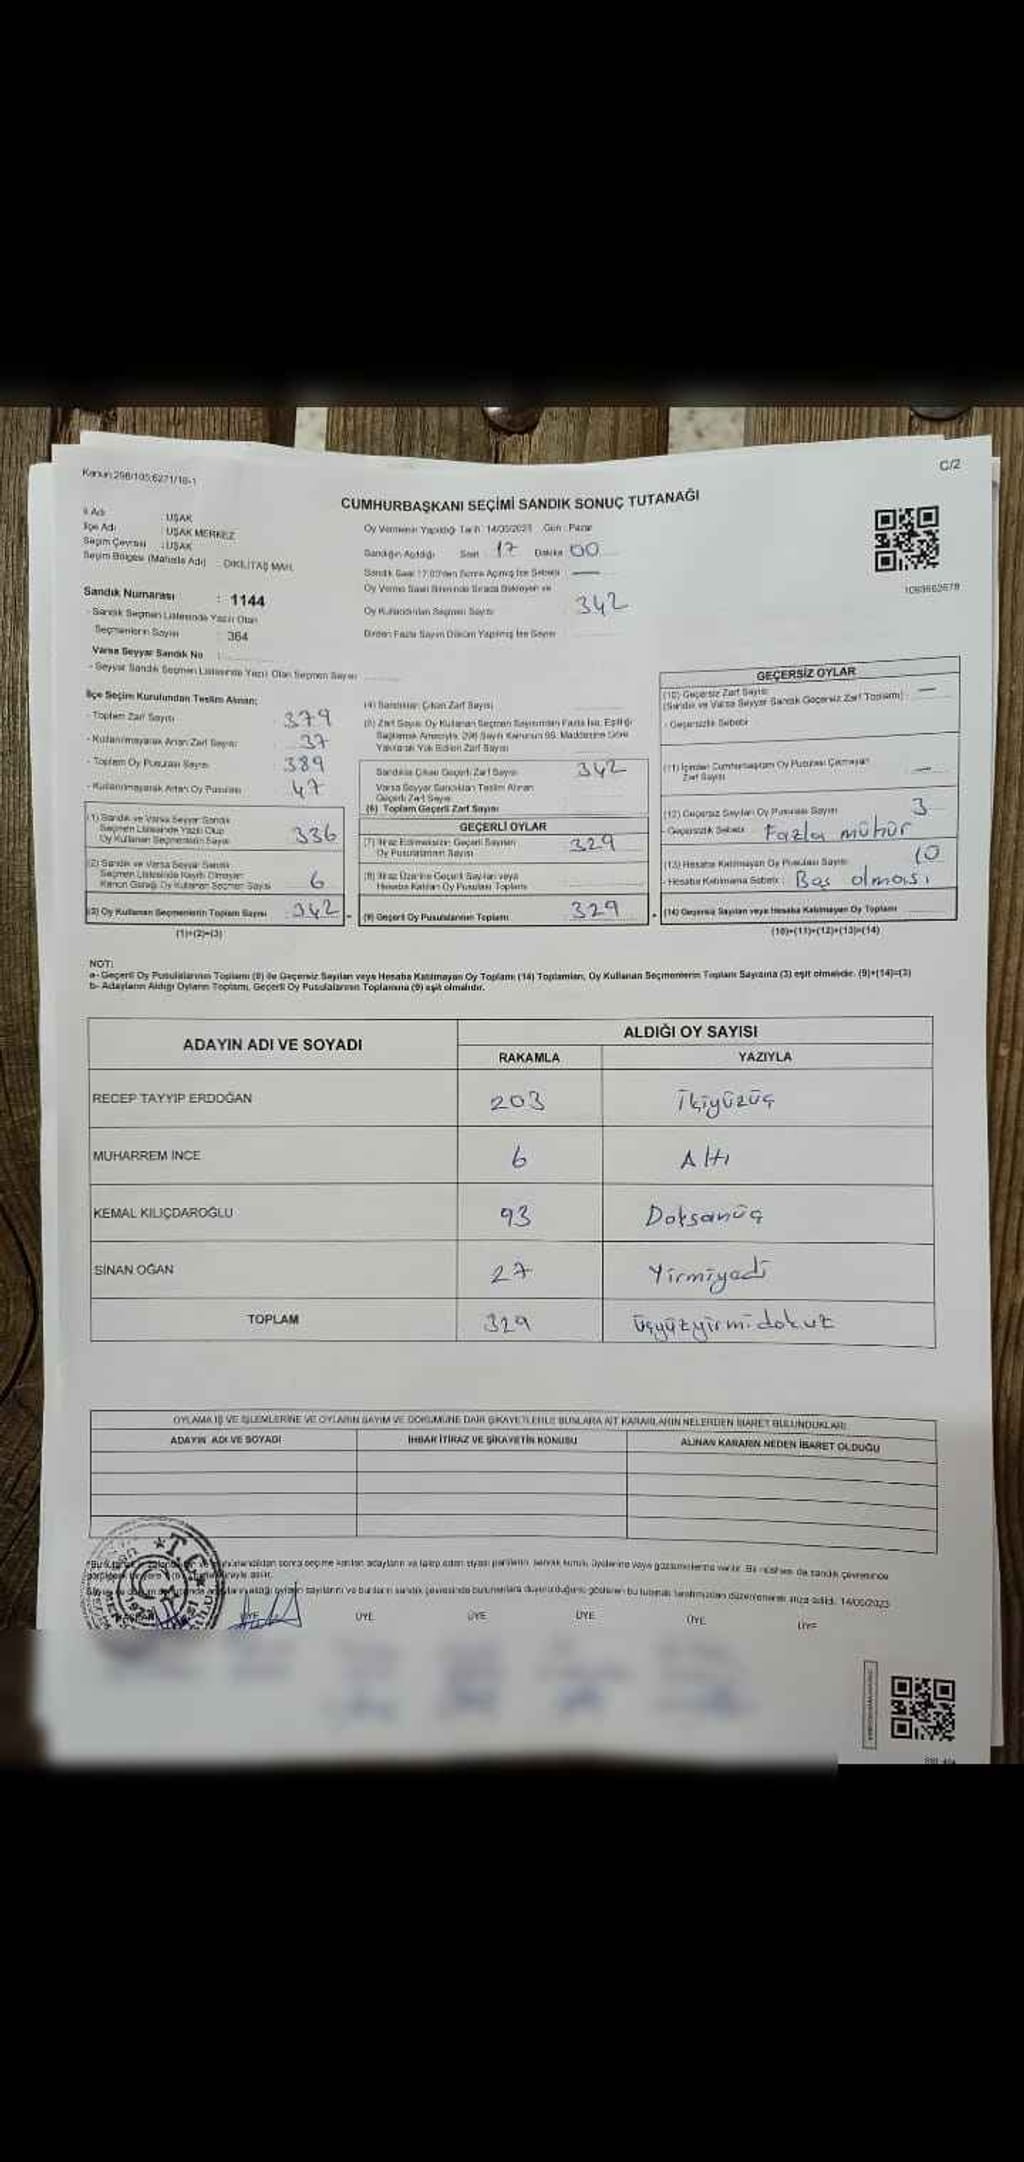 Kanun:298/105;6271/18-1
C/2
CUMHURBAŞKANI SEÇİMİ SANDIK SONUÇ TUTANAĞI
İl Adı : UŞAK
İlçe Adı : UŞAK MERKEZ
Seçim Çevresi : UŞAK
Seçim Bölgesi (Mahalle Adı) : DİKİLİTAŞ MAH.
Oy Vermenin Yapıldığı Tarih : 14/05/2023 Gün : Pazar
Sandığın Açıldığı Saat : 17 Dakika 00
Sandık Saat 17:00'den Sonra Açılmış İse Sebebi : —
Oy Verme Saati Bitiminde Sırada Bekleyen ve
Oy Kullandırılan Seçmen Sayısı 342
Birden Fazla Sayım Döküm Yapılmış İse Sayısı
1093662678
Sandık Numarası : 1144
- Sandık Seçmen Listesinde Yazılı Olan
Seçmenlerin Sayısı : 364
Varsa Seyyar Sandık No :
- Seyyar Sandık Seçmen Listesinde Yazılı Olan Seçmen Sayısı
İlçe Seçim Kurulundan Teslim Alınan;
- Toplam Zarf Sayısı : 379
- Kullanılmayarak Artan Zarf Sayısı : 37
- Toplam Oy Pusulası Sayısı : 389
- Kullanılmayarak Artan Oy Pusulası : 47
(1) Sandık ve Varsa Seyyar Sandık
Seçmen Listesinde Yazılı Olup
Oy Kullanan Seçmenlerin Sayısı 336
(2) Sandık ve Varsa Seyyar Sandık
Seçmen Listesinde Kayıtlı Olmayan
Kanun Gereği Oy Kullanan Seçmen Sayısı 6
(3) Oy Kullanan Seçmenlerin Toplam Sayısı 342
(1)+(2)=(3)
(4) Sandıktan Çıkan Zarf Sayısı
(5) Zarf Sayısı Oy Kullanan Seçmen Sayısından Fazla İse, Eşitliği
Sağlamak Amacıyla, 298 Sayılı Kanunun 98. Maddesine Göre
Yakılarak Yok Edilen Zarf Sayısı
Sandıkta Çıkan Geçerli Zarf Sayısı 342
Varsa Seyyar Sandıktan Teslim Alınan
Geçerli Zarf Sayısı
(6) Toplam Geçerli Zarf Sayısı
GEÇERLİ OYLAR
(7) İtiraz Edilmeksizin Geçerli Sayılan
Oy Pusulalarının Sayısı 329
(8) İtiraz Üzerine Geçerli Sayılan veya
Hesaba Katılan Oy Pusulası Toplamı
(9) Geçerli Oy Pusulalarının Toplamı 329
GEÇERSİZ OYLAR
(10) Geçersiz Zarf Sayısı
(Sandık ve Varsa Seyyar Sandık Geçersiz Zarf Toplamı) : —
- Geçersizlik Sebebi
(11) İçinden Cumhurbaşkanı Oy Pusulası Çıkmayan
Zarf Sayısı —
(12) Geçersiz Sayılan Oy Pusulası Sayısı 3
- Geçersizlik Sebebi : Fazla mühür
(13) Hesaba Katılmayan Oy Pusulası Sayısı 10
- Hesaba Katılmama Sebebi : Boş olması
(14) Geçersiz Sayılan veya Hesaba Katılmayan Oy Toplamı
(10)+(11)+(12)+(13)=(14)
NOT:
a- Geçerli Oy Pusulalarının Toplamı (9) ile Geçersiz Sayılan veya Hesaba Katılmayan Oy Toplamı (14) Toplamları, Oy Kullanan Seçmenlerin Toplam Sayısına (3) eşit olmalıdır. (9)+(14)=(3)
b- Adayların Aldığı Oyların Toplamı, Geçerli Oy Pusulalarının Toplamına (9) eşit olmalıdır.
ADAYIN ADI VE SOYADI
ALDIĞI OY SAYISI
RAKAMLA YAZIYLA
RECEP TAYYİP ERDOĞAN 203 İkiyüzüç
MUHARREM İNCE 6 Altı
KEMAL KILIÇDAROĞLU 93 Doksanüç
SİNAN OĞAN 27 Yirmiyedi
TOPLAM 329 üçyüzyirmidokuz
OYLAMA İŞ VE İŞLEMLERİNE VE OYLARIN SAYIM VE DÖKÜMÜNE DAİR ŞİKAYETLERLE BUNLARA AİT KARARLARIN NELERDEN İBARET BULUNDUKLARI
ADAYIN ADI VE SOYADI İHBAR İTİRAZ VE ŞİKAYETİN KONUSU ALINAN KARARIN NEDEN İBARET OLDUĞU
sonra seçime katılan adayların ve talep eden siyasi partilerin, sandık kurulu üyelerine veya gözlemcilerine verilir. Bir nüshası da sandık çevresinde
sayılarını ve bunların sandık çevresinde bulunanlara duyurulduğunu gösteren bu tutanak tarafımızdan düzenlenerek imza edildi. 14/05/2023
ÜYE ÜYE ÜYE ÜYE ÜYE ÜYE